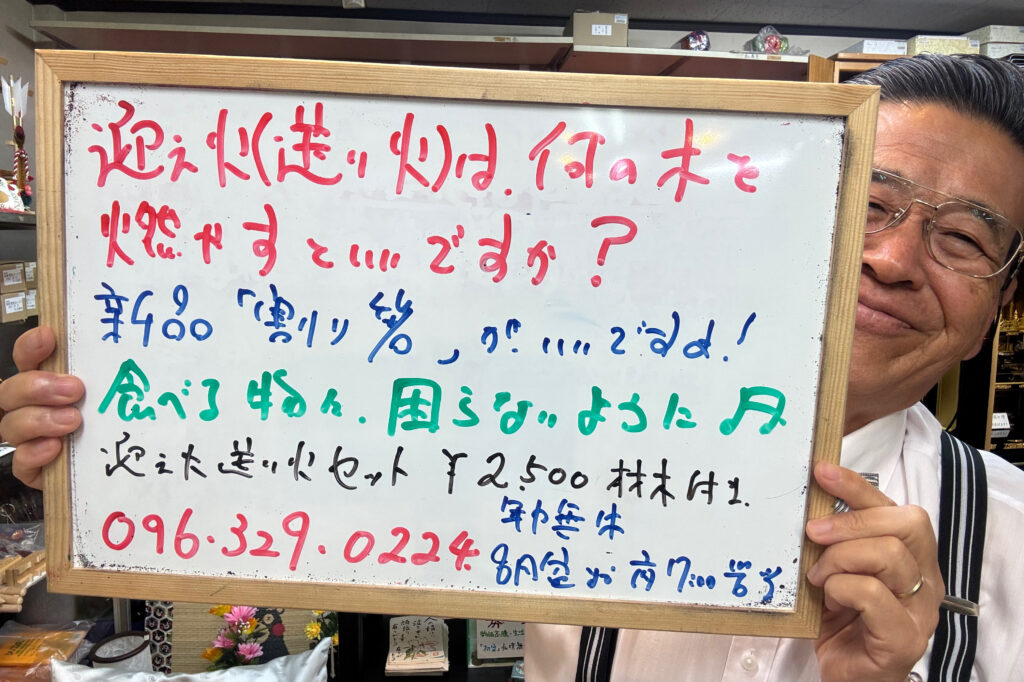 迎え火(送り火)は、何の木を
燃やすといいですか?
新品「割り箸」がいいですよ!
食べる物に、困らないように
迎え火送り火セット ¥2,500 材木付き
096.329.0224
年中無休
8月盆は夜7:00